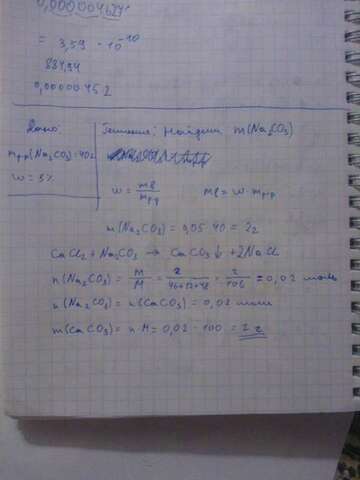 0,000004627
= 3,59 · 10⁻¹⁰
834,94
0,0000045 2
Дано: Решение: Найдем m(Na₂CO₃)
mр-р(Na₂CO₃)=40г
w = 5%
w = mв/mр-р mв = w · mр-р
m(Na₂CO₃) = 0,05 · 40 = 2г
CaCl₂ + Na₂CO₃ → CaCO₃↓ + 2NaCl
n(Na₂CO₃) = m/M = 2/46+12+48 = 2/106 = 0,02 моль
n(Na₂CO₃) = n(CaCO₃) = 0,02 моль
m(CaCO₃) = n · M = 0,02 · 100 = 2 г